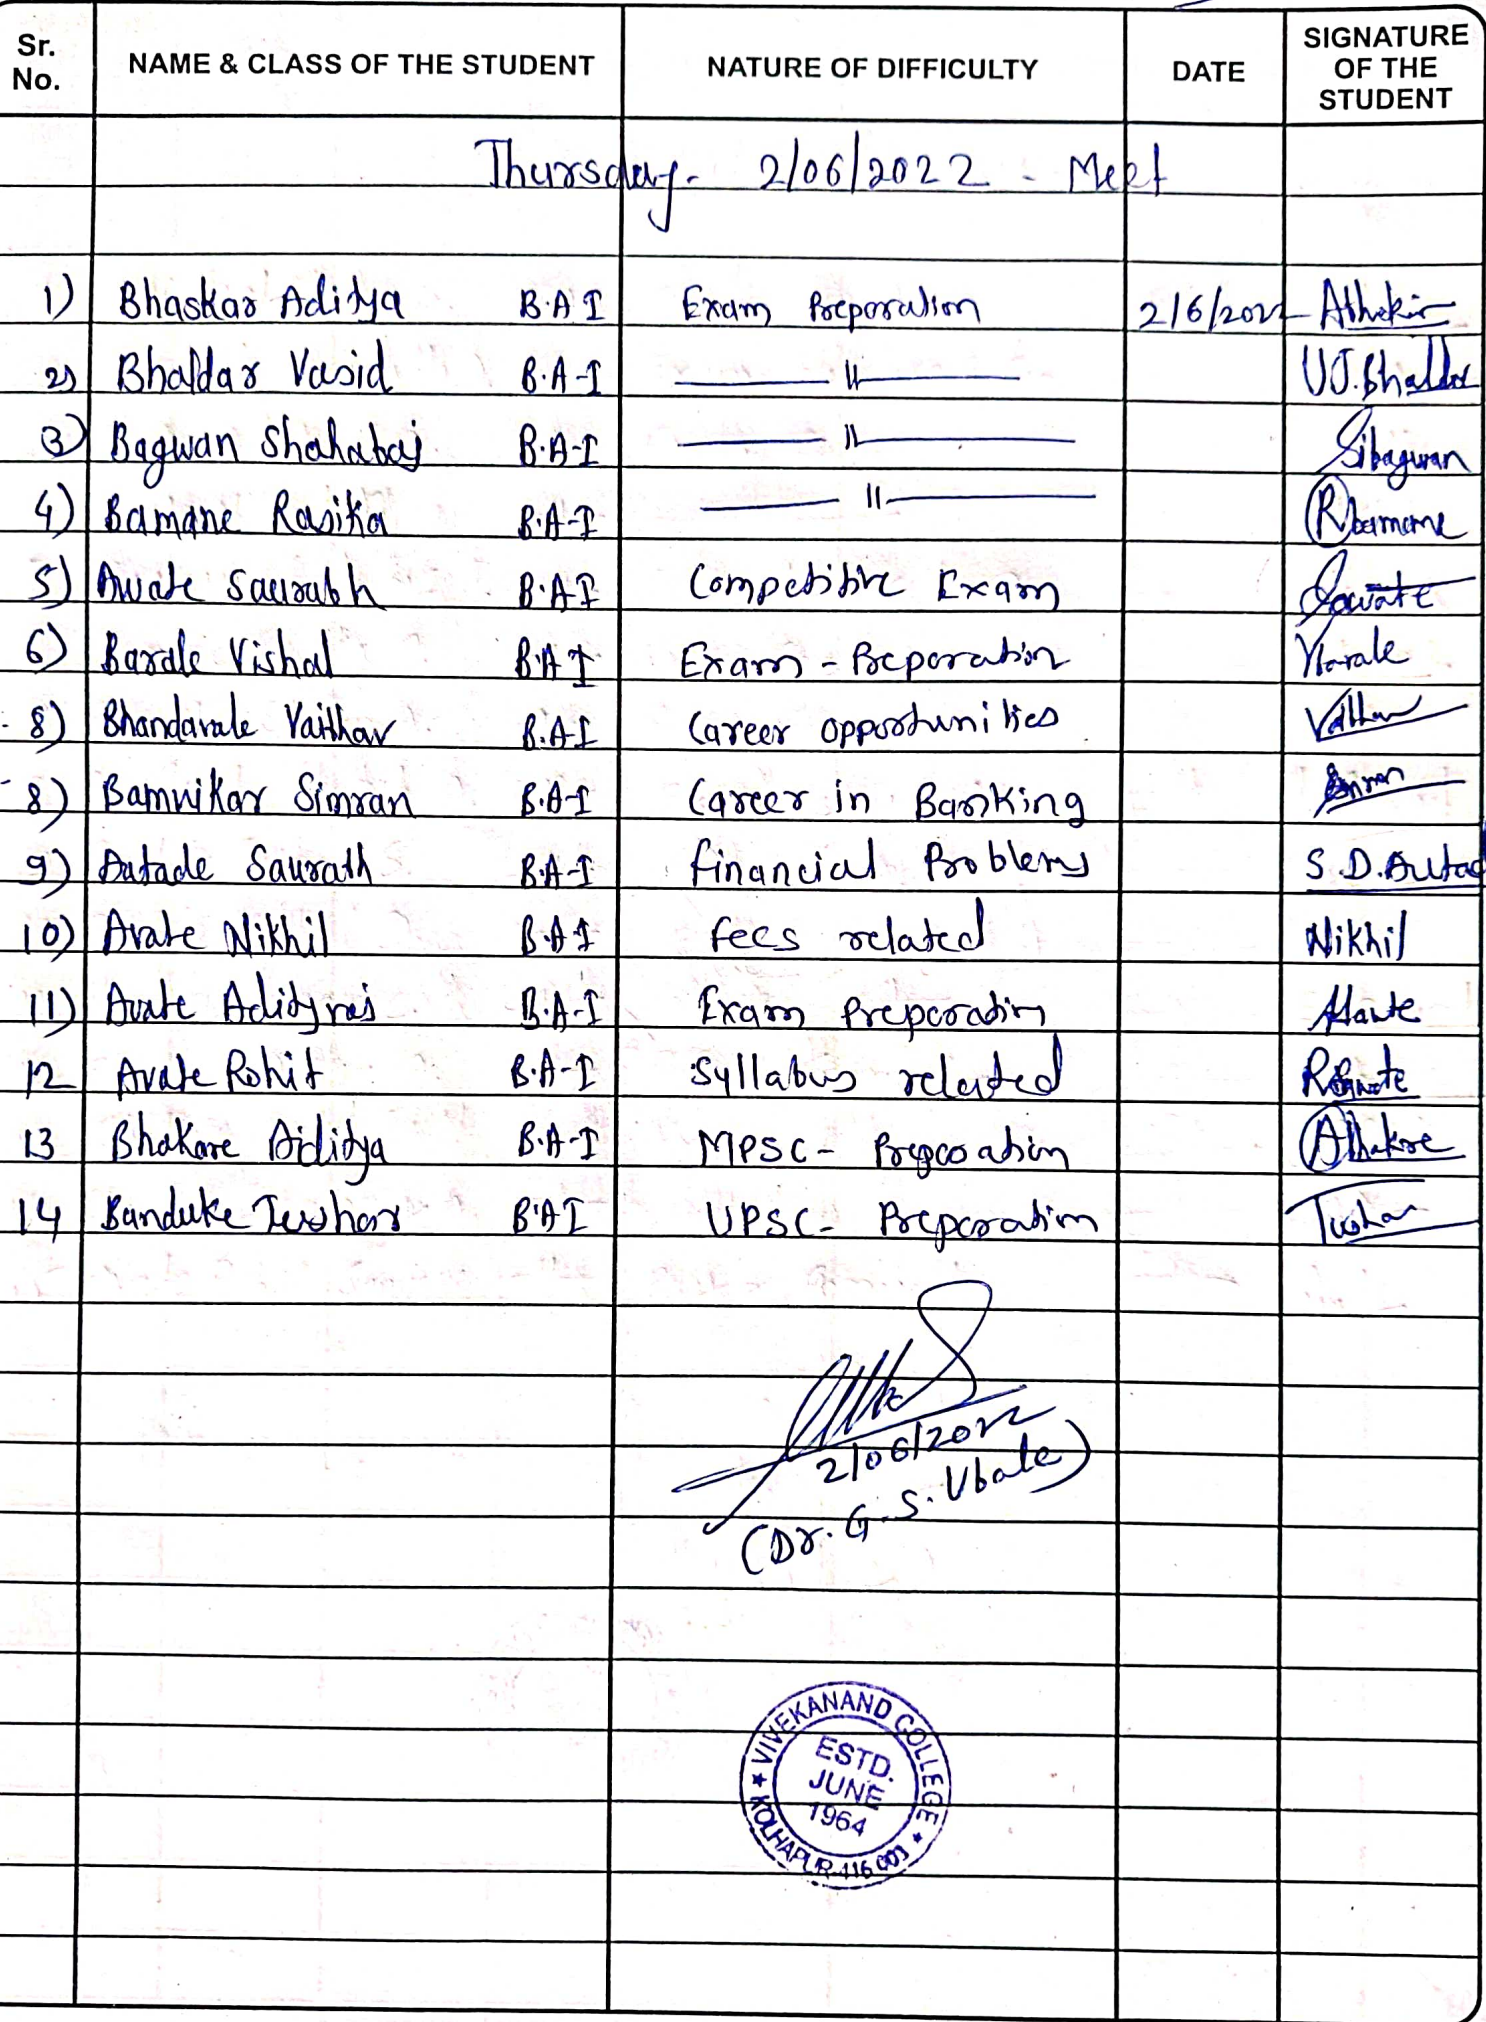 Sr. No. NAME & CLASS OF THE STUDENT NATURE OF DIFFICULTY DATE SIGNATURE OF THE STUDENT
Thursday - 2/06/2022 - Meet
1) Bhaskar Aditya B.A I Exam Preparation 2/6/2022
2) Bhaldar Vasid B.A-I —— 11 —— U.J.Bhaldar
3) Bagwan Shahabaj B.A-I —— 11 —— Sibagwan
4) Bamane Rasika B.A-I —— 11 —— Rbamane
5) Awate Saurabh B.A I Competitive Exam
6) Barale Vishal B.A I Exam - Preparation VBarale
8) Bhandavale Vaibhav B.A-I Career opportunities
8) Bamnikar Simran B.A-I Career in Banking Simran
9) Autade Saurabh B.A-I financial Problems S.D.Autad
10) Avate Nikhil B.A I fees related Nikhil
11) Avate Adityraj B.A-I Exam Preparation
12 Avate Rohit B.A-I Syllabus related
13 Bhakare Aditya B.A-I MPSC - Preparation ABhakre
14 Banduke Tushar B.A I UPSC - Preparation Tushar
2/06/2022
(Dr. G. S. Ubale)
VIVEKANAND COLLEGE
ESTD.
JUNE
1964
KOLHAPUR-416 003